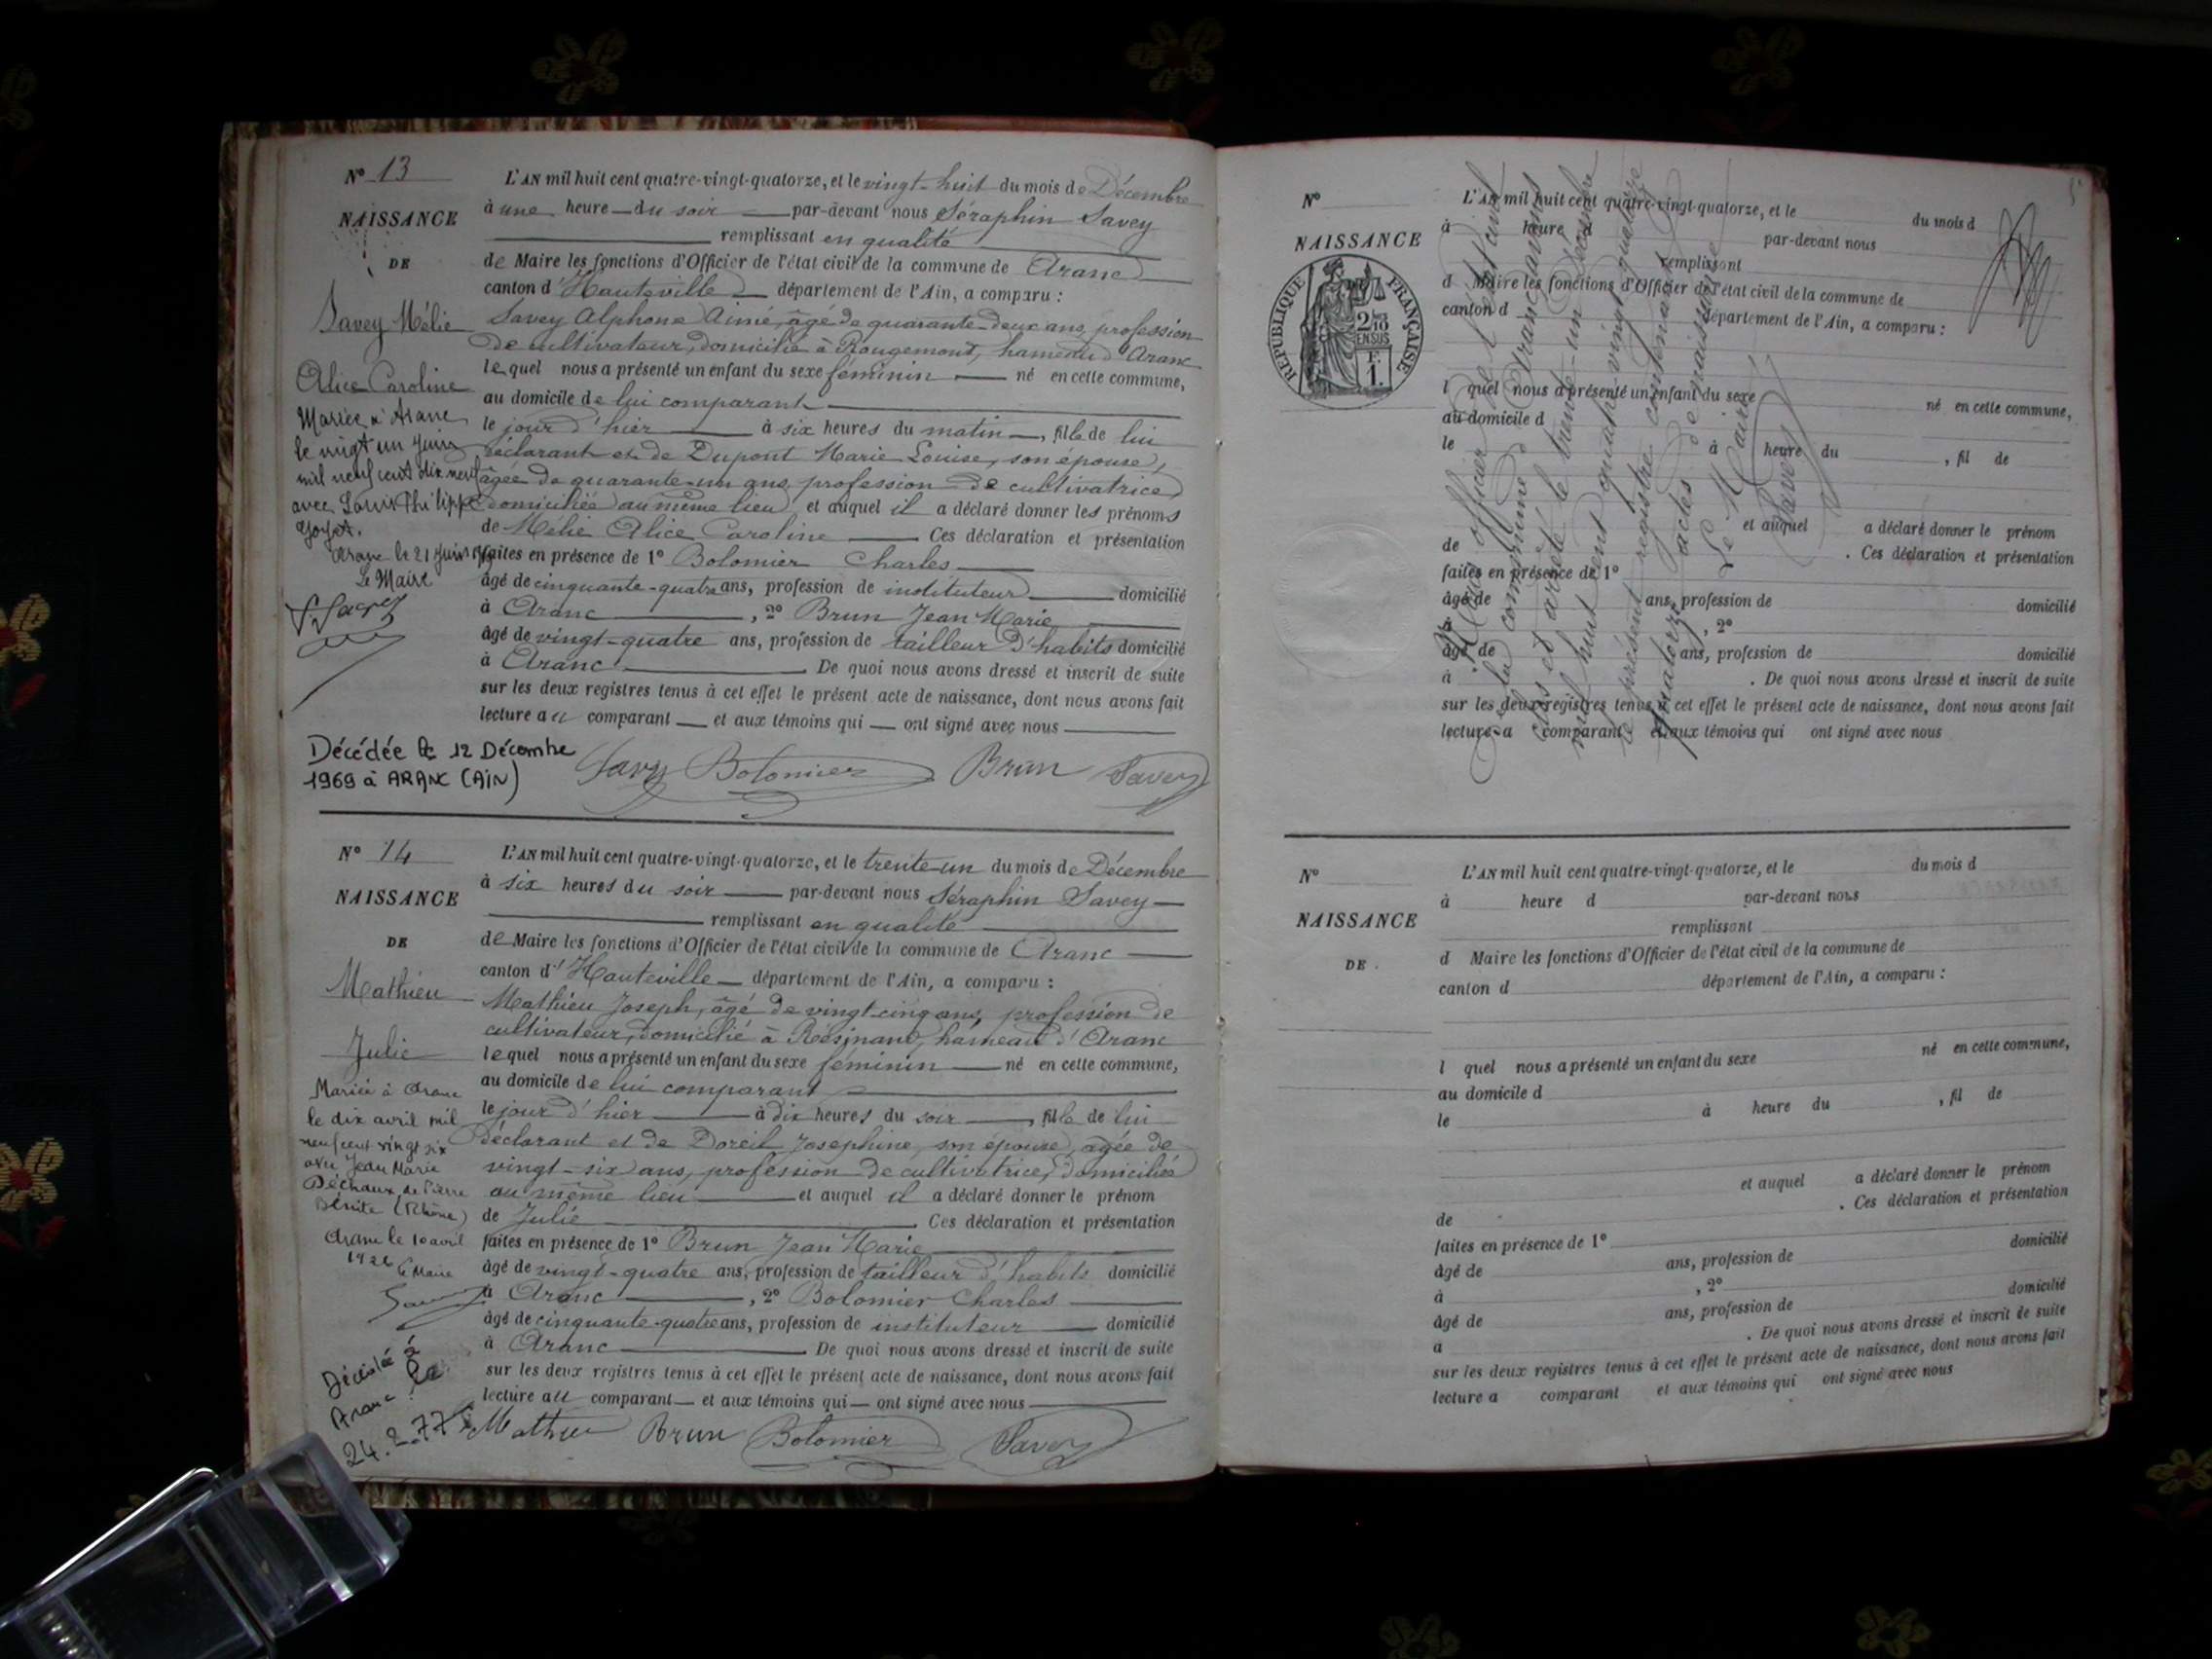 N° 13
NAISSANCE
DE
Savey Mélie
Alice Caroline
Mariée à Aranc
le vingt un Juin
mil neuf cent dix neuf
avec Louis Philippe
Goyet.
Aranc le 21 Juin
Le Maire
Décédée le 12 Décembre
1969 à ARANC (AIN)
L'AN mil huit cent quatre-vingt-quatorze, et le vingt-huit du mois de Décembre
à une heure du soir par-devant nous Séraphin Savey
remplissant en qualité
de Maire les fonctions d'Officier de l'état civil de la commune de Aranc
canton d'Hauteville département de l'Ain, a comparu :
Savey Alphonse Aimé, âgé de quarante-deux ans, profession
de cultivateur, domicilié à Rougemont, hameau d'Aranc
lequel nous a présenté un enfant du sexe féminin né en cette commune,
au domicile de lui comparant
le jour d'hier à six heures du matin, fille de lui
déclarant et de Dupont Marie Louise, son épouse,
âgée de quarante-un ans, profession de cultivatrice
domiciliée au même lieu et auquel il a déclaré donner les prénoms
de Mélie Alice Caroline Ces déclaration et présentation
faites en présence de 1° Bolomier Charles
âgé de cinquante-quatre ans, profession de instituteur domicilié
à Aranc, 2° Brun Jean Marie
âgé de vingt-quatre ans, profession de tailleur d'habits domicilié
à Aranc. De quoi nous avons dressé et inscrit de suite
sur les deux registres tenus à cet effet le présent acte de naissance, dont nous avons fait
lecture au comparant et aux témoins qui ont signé avec nous
Savey Bolomier Brun Savey
N° 14
NAISSANCE
DE
Mathieu
Julie
Mariée à Aranc
le dix avril mil
neuf cent vingt six
avec Jean Marie
Déchaux de Pierre
Bénite (Rhône)
Aranc le 10 avril
1926 Le Maire
Décédée à
Aranc le
24.2.77
L'AN mil huit cent quatre-vingt-quatorze, et le trente-un du mois de Décembre
à six heures du soir par-devant nous Séraphin Savey
remplissant en qualité
de Maire les fonctions d'Officier de l'état civil de la commune de Aranc
canton d'Hauteville département de l'Ain, a comparu :
Mathieu Joseph, âgé de vingt-cinq ans, profession de
cultivateur, domicilié à Résinand, hameau d'Aranc
lequel nous a présenté un enfant du sexe féminin né en cette commune,
au domicile de lui comparant
le jour d'hier à dix heures du soir, fille de lui
déclarant et de Doreil Josephine, son épouse, âgée de
vingt-six ans, profession de cultivatrice, domiciliée
au même lieu et auquel il a déclaré donner le prénom
de Julie. Ces déclaration et présentation
faites en présence de 1° Brun Jean Marie
âgé de vingt-quatre ans, profession de tailleur d'habits domicilié
à Aranc, 2° Bolomier Charles
âgé de cinquante-quatre ans, profession de instituteur domicilié
à Aranc. De quoi nous avons dressé et inscrit de suite
sur les deux registres tenus à cet effet le présent acte de naissance, dont nous avons fait
lecture au comparant et aux témoins qui ont signé avec nous
Mathieu Brun Bolomier Savey
N°
NAISSANCE
RÉPUBLIQUE FRANÇAISE
2/10
EN SUS
F.
1.
L'AN mil huit cent quatre-vingt-quatorze, et le du mois d
à heure d par-devant nous
remplissant
d Maire les fonctions d'Officier de l'état civil de la commune de
canton d département de l'Ain, a comparu :
l quel nous a présenté un enfant du sexe né en cette commune,
au domicile d
le à heure du , fil de
et auquel a déclaré donner le prénom
de . Ces déclaration et présentation
faites en présence de 1°
âgé de ans, profession de domicilié
à , 2°
âgé de ans, profession de domicilié
à . De quoi nous avons dressé et inscrit de suite
sur les deux registres tenus à cet effet le présent acte de naissance, dont nous avons fait
lecture a comparant et aux témoins qui ont signé avec nous
Nous officier de l'état civil
de la commune d'Aranc, avons
clos et arrêté le trente-un Décembre
mil huit cent quatre vingt quatorze
le présent registre contenant
quatorze actes de naissance
Le Maire
Savey
N°
NAISSANCE
DE
L'AN mil huit cent quatre-vingt-quatorze, et le du mois d
à heure d par-devant nous
remplissant
d Maire les fonctions d'Officier de l'état civil de la commune de
canton d département de l'Ain, a comparu :
l quel nous a présenté un enfant du sexe né en cette commune,
au domicile d
le à heure du , fil de
et auquel a déclaré donner le prénom
de . Ces déclaration et présentation
faites en présence de 1°
âgé de ans, profession de domicilié
à , 2°
âgé de ans, profession de domicilié
a . De quoi nous avons dressé et inscrit de suite
sur les deux registres tenus à cet effet le présent acte de naissance, dont nous avons fait
lecture a comparant et aux témoins qui ont signé avec nous